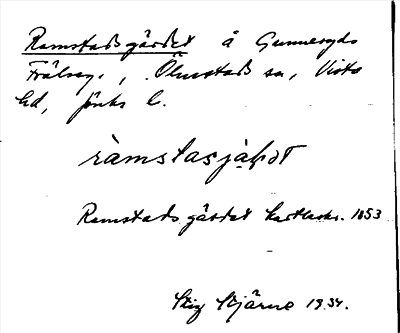 Ramstadsgärdet å Gunneryds
Frälseg., Ölmstads sn, Vista
hd, Jönk. l.
ràmstasjàḥəт
Ramstads gärdet kartbeskr. 1853
Stig Stjärne 1934.